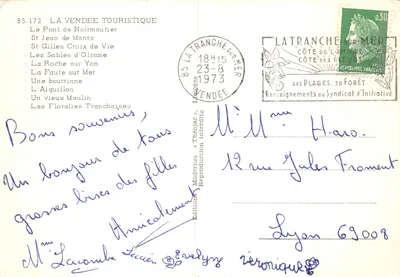 85.172 LA VENDEE TOURISTIQUE
Le Pont de Noirmoutier
St Jean de Monts
St Gilles Croix de Vie
Les Sables d'Olonne
La Roche sur Yon
La Faute sur Mer
Une bourrinne
L'Aiguillon
Un vieux Moulin
Les Floralies Tranchaises
Bons souvenirs,
Un bonjour de tous
grosses bises des filles
Amicalement
Mme Lacombe Lucien Evelyne Véronique
Reproduction interdite
85 LA TRANCHE SUR MER
18H15
23-8
1973
VENDEE
LA TRANCHE SUR MER
CÔTE DE LUMIÈRE
SES PLAGES, SA FORÊT
Renseignements au Syndicat d'Initiative
0,30
M. Mme Haro.
12 rue Jules Froment
Lyon 69008